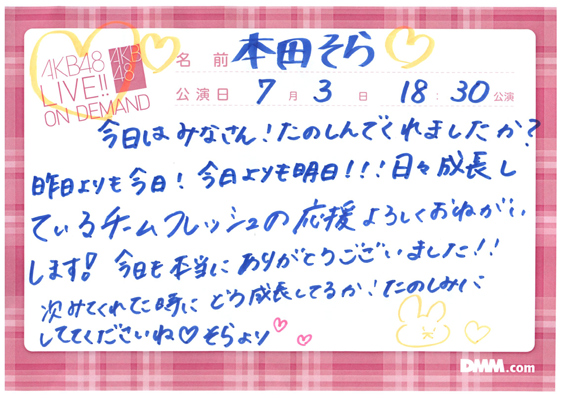 AKB48
LIVE!!
ON DEMAND
AKB
48
名前 本田そら♡
公演日 7月3日 18:30公演
今日はみなさん!たのしんでくれましたか?
昨日よりも今日!今日よりも明日!!!日々成長し
ているチームフレッシュの応援よろしくおねがい
します!今日も本当にありがとうございました!!
次みてくれてた時にどう成長してるか!たのしみに
しててくださいね♡そらより♡
DMM.com